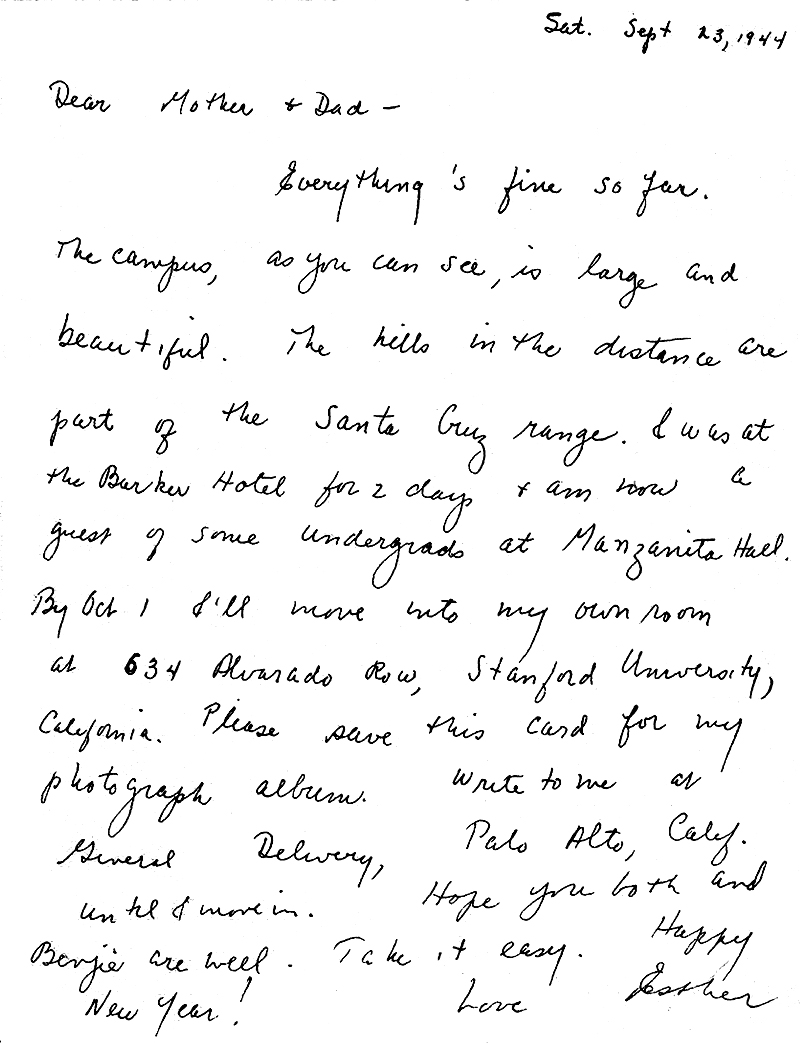 Sat. Sept 23, 1944
Dear Mother & Dad –
Everything's fine so far.
The campus, as you can see, is large and
beautiful. The hills in the distance are
part of the Santa Cruz range. I was at
the Barker Hotel for 2 days & am now a
guest of some undergrads at Manzanita Hall.
By Oct 1 I'll move into my own room
at 634 Alvarado Row, Stanford University,
California. Please save this card for my
photograph album. Write to me at
General Delivery, Palo Alto, Calif.
until I move in. Hope you both and
Benjie are well. Take it easy. Happy
New Year! Love Esther